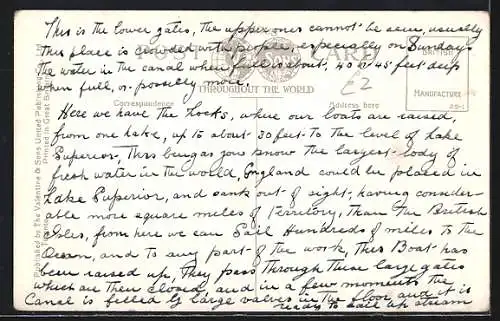 This is the lower gates, the upper ones cannot be seen, usually
this place is crowded with people, especially on Sundays
POST CARD
BRITISH
the water in the canal when full is about, 40 or 45 feet deep
when full, or possibly more.
£2
THROUGHOUT THE WORLD
MANUFACTURE
Correspondence
Address here
Here we have the Locks, where our boats are raised,
from one lake, up to about 30 feet to the level of Lake
Superior, This being as you know the largest body of
fresh water in the world, England could be placed in
Lake Superior, and sank out of sight, having consider-
able more square miles of Territory, Than the British
Isles, from here we can sail Hundreds of miles to the
Ocean, and to any part of the work, This Boat has
been raised up, They pass through these large gates
which are then closed, and in a few moments the
Canal is filled by large valves in the floor, and it is
ready to sail up stream
Published by The Valentine & Sons United Publishing
Printed in Great Britain